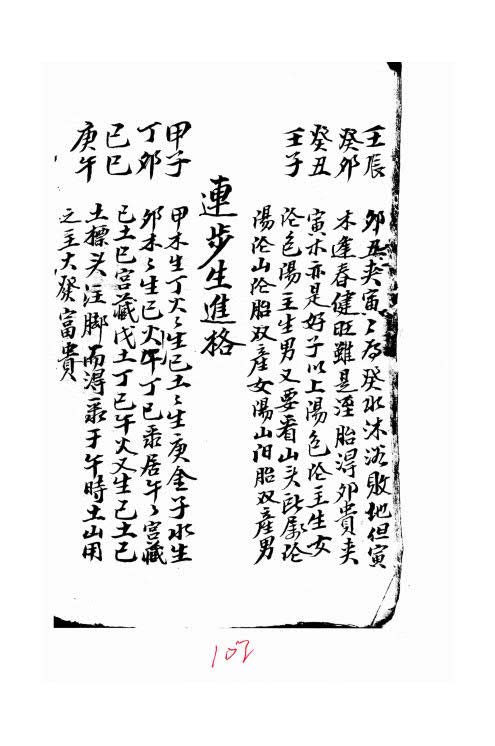 壬辰
癸卯
癸丑
壬子
卯丑夹寅〻為癸水沐浴敗地但寅
木逢春健旺雖是溼胎得卯貴夹
寅木亦是好子以上陽包阴主生女
阴包陽主生男又要看山头
陽阴山阴胎双產女陽山阳胎双產男
連步生進格
甲子
丁卯
己巳
庚午
甲木生丁火〻生己土〻生庚金子水生
卯木〻生巳火午丁己乘居午〻宫藏
己土巳宫藏戊土丁巳午火又生己土已
土標头注脚而得乘于午時土山用
之主大發富貴
107